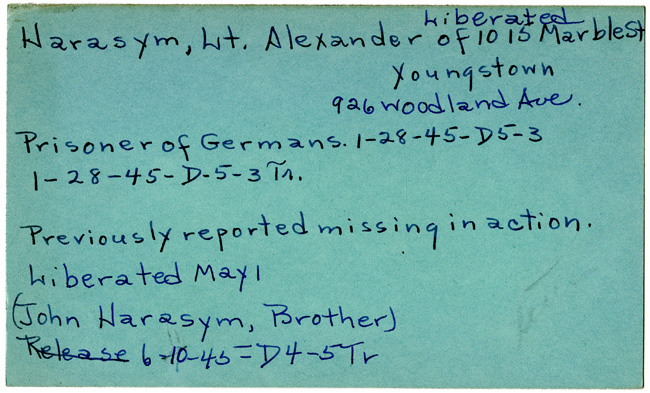 Liberated
Harasym, Lt. Alexander of 1015 Marble St
Youngstown
926 Woodland Ave.
Prisoner of Germans. 1-28-45-D5-3
1-28-45-D-5-3 Tr.
Previously reported missing in action.
Liberated May 1
(John Harasym, Brother)
Release 6-10-45-D4-5 Tr